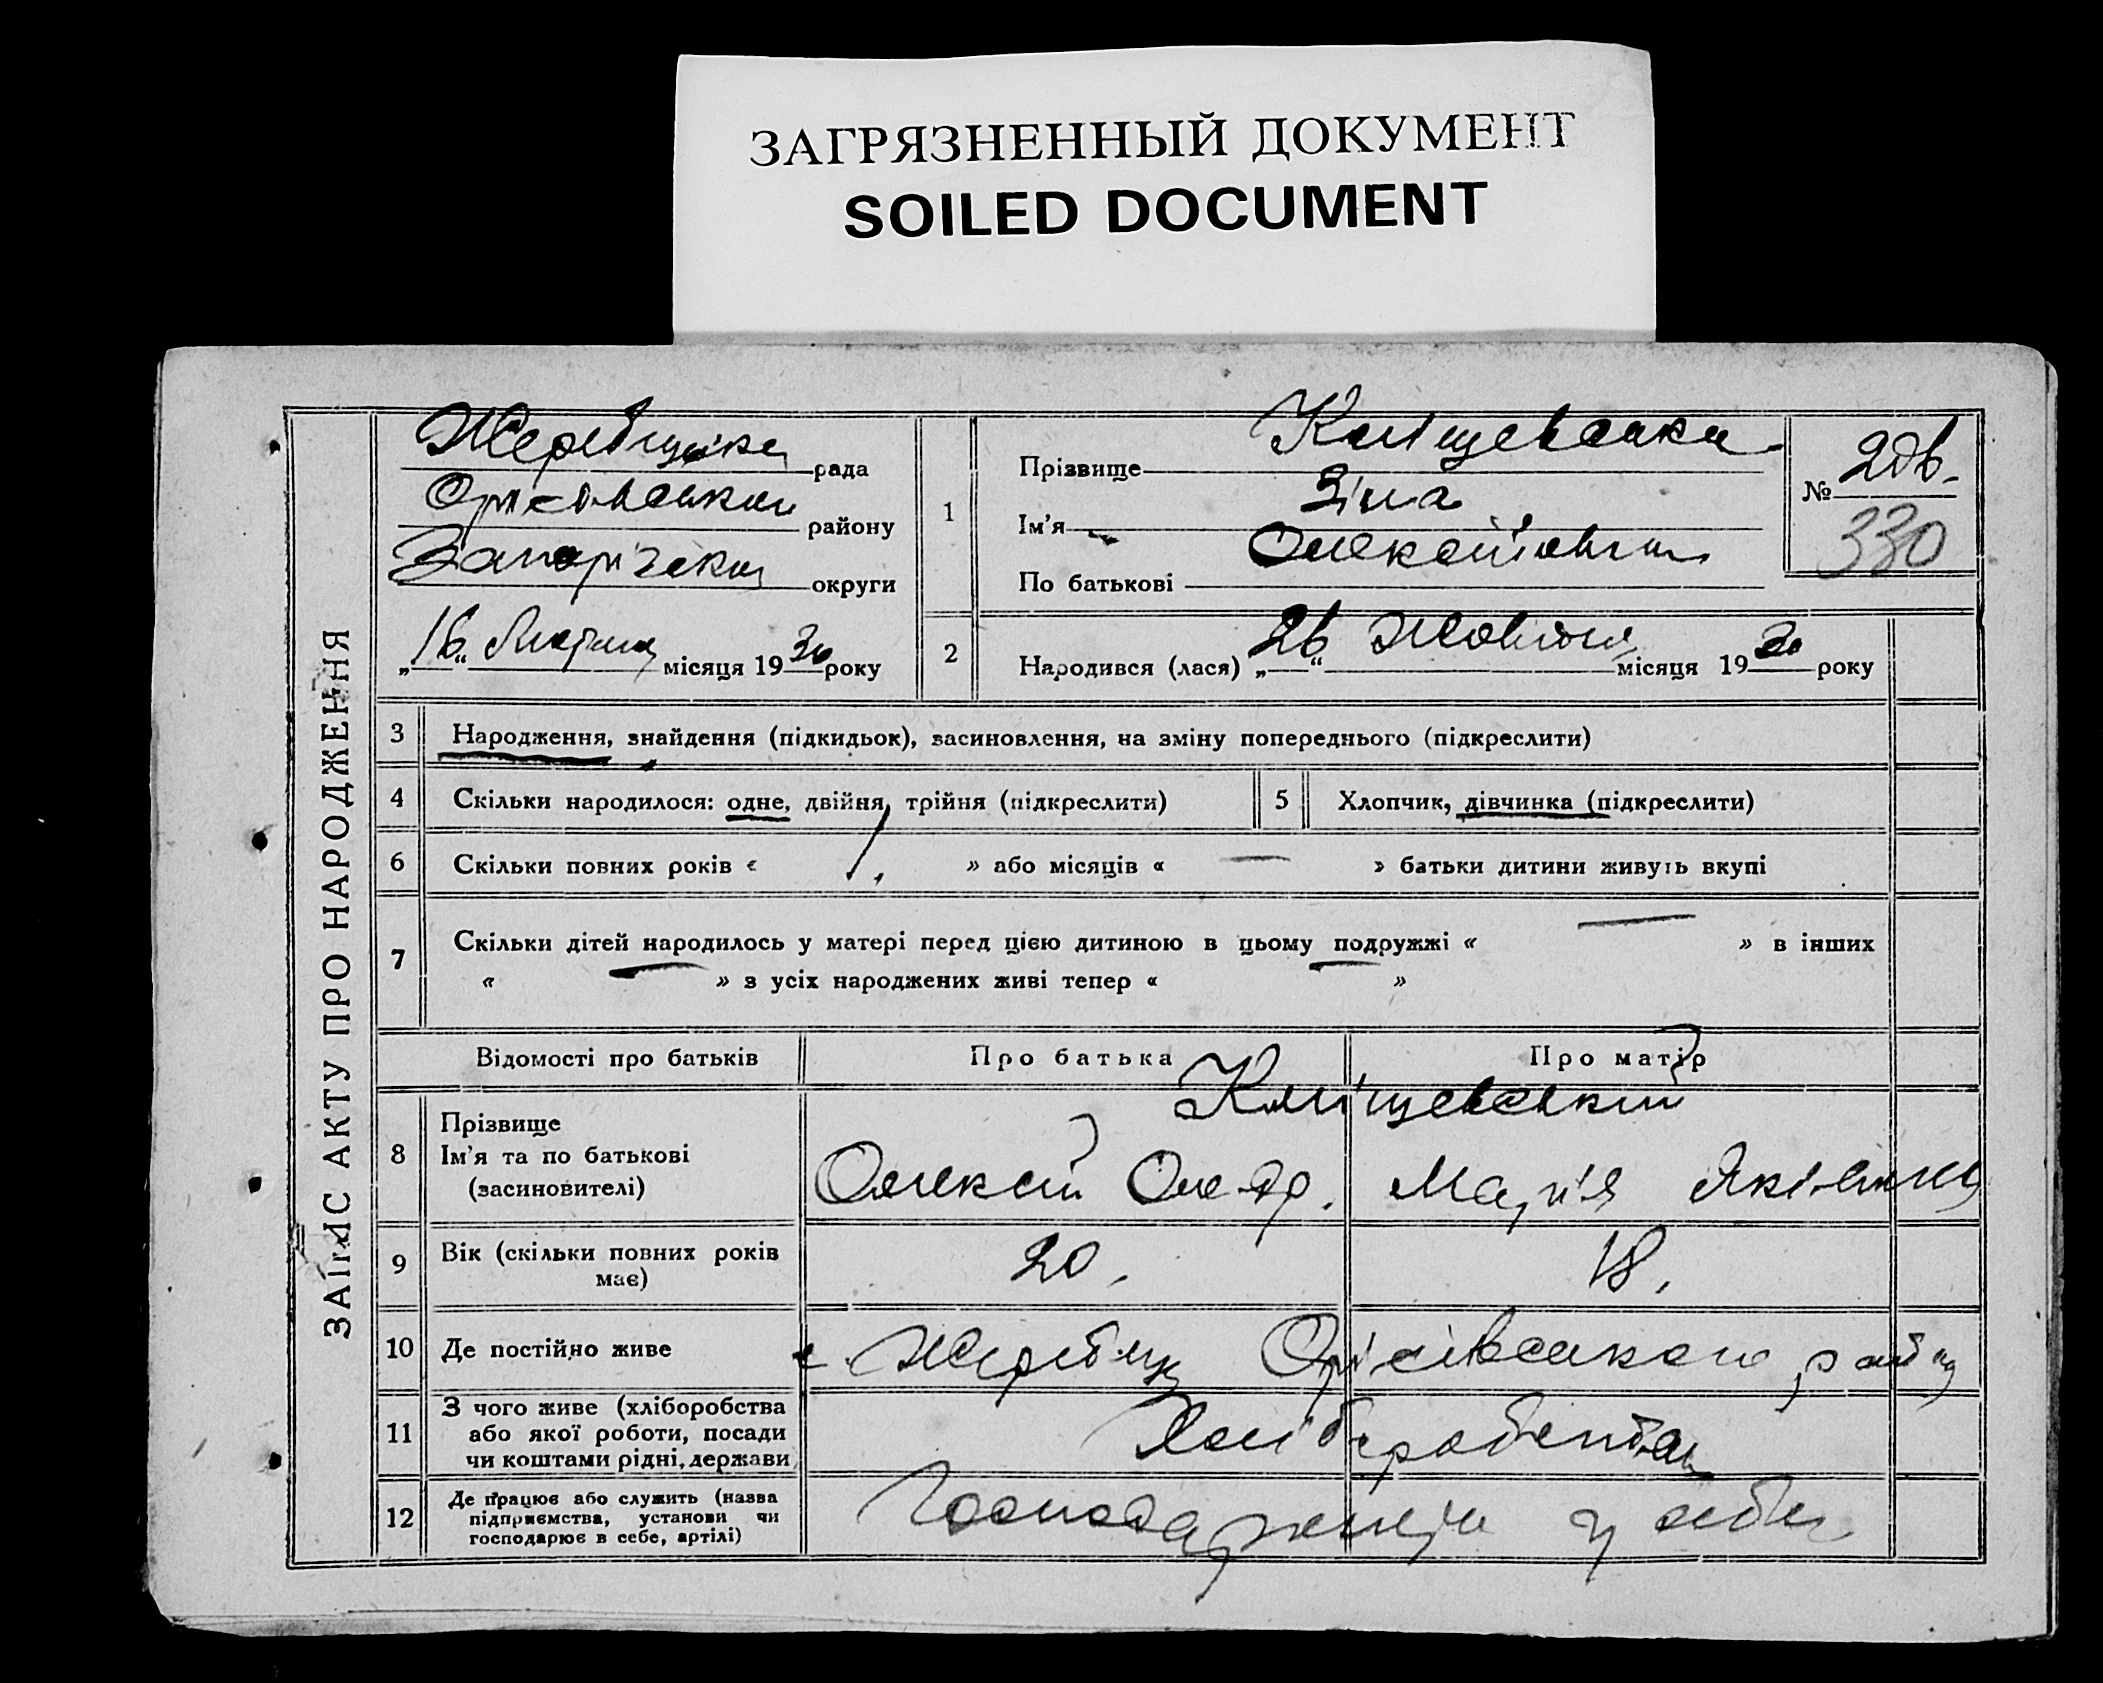 ЗАГРЯЗНЕННЫЙ ДОКУМЕНТ
SOILED DOCUMENT
ЗАПИС АКТУ ПРО НАРОДЖЕННЯ
Жеребецька рада
Оріхівський району
Запорізької округи
„16“ місяця 1930 року
1
Прізвище Кліщевська
Ім'я Зіна
По батькові Олексіївна
№ 206.
330
2
Народився (лася) „26“ Жовтня місяця 1930 року
3 Народження, знайдення (підкидьок), засиновлення, на зміну попереднього (підкреслити)
4 Скільки народилося: одне, двійня, трійня (підкреслити)
5 Хлопчик, дівчинка (підкреслити)
6 Скільки повних років « 1. » або місяців « — » батьки дитини живуть вкупі
7 Скільки дітей народилось у матері перед цією дитиною в цьому подружжі « — » в інших
« — » з усіх народжених живі тепер « »
Відомості про батьків Про батька Про матір
8 Прізвище
Ім'я та по батькові
(засиновителі)
Кліщевський
Олексій Олекдр. Марія Яківна
9 Вік (скільки повних років
має)
20. 18.
10 Де постійно живе
с. Жеребець Оріхівського району
11 З чого живе (хліборобства
або якої роботи, посади
чи коштами рідні, держави
Хліборобства
12 Де працює або служить (назва
підприємства, установи чи
господарює в себе, артілі)
у себе